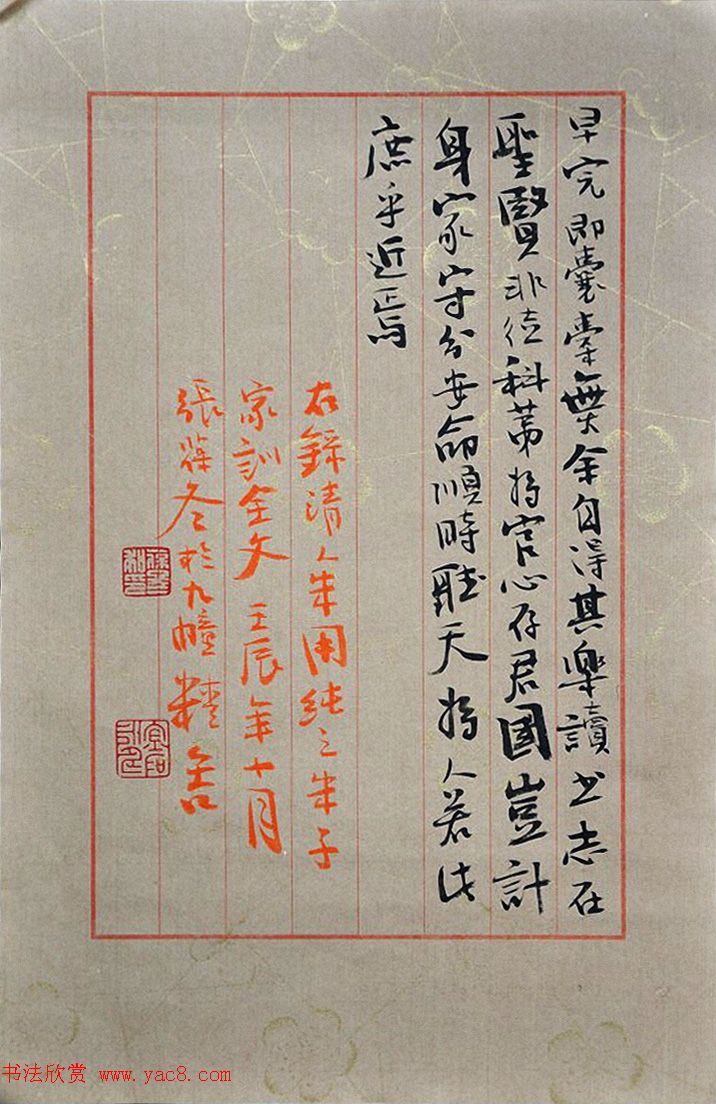 早完即囊橐無余自得其樂讀书志在
聖賢非徒科第为官心存君國豈計
身家守分安命順時聽天为人若此
庶乎近焉
右錄清人朱用純之朱子
家訓全文 壬辰年十月
張葆冬於九幢精舍
书法欣赏 www.yac8.com